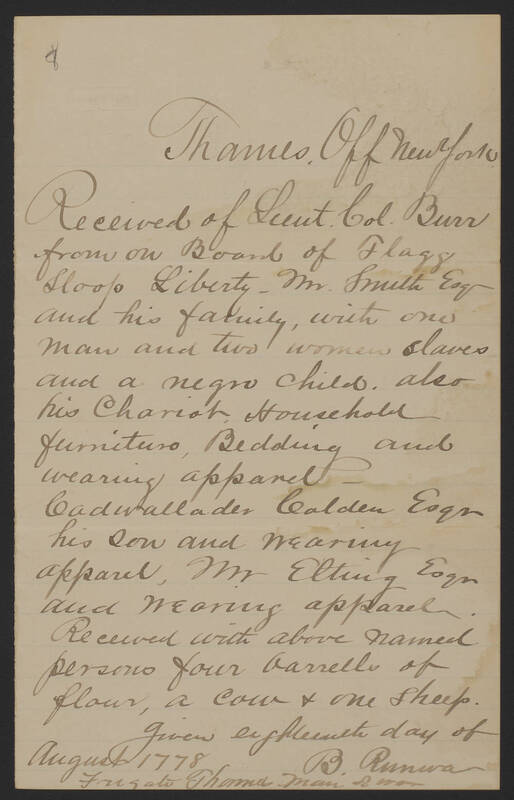 8
Thames, Off New York.
Received of Lieut. Col. Burr
from on Board of Flagg
Sloop Liberty - Mr. Smith Esqr
and his family, with one
man and two women slaves
and a negro child. also
his Chariot, Household
furniture, Bedding and
wearing apparel -
Cadwallader Colden Esqr
his son and wearing
apparel, Mr Elting Esqr
and wearing apparel.
Received with above named
persons four barrells of
flour, a cow & one sheep.
Given eighteenth day of
August 1778
B.
Frigate